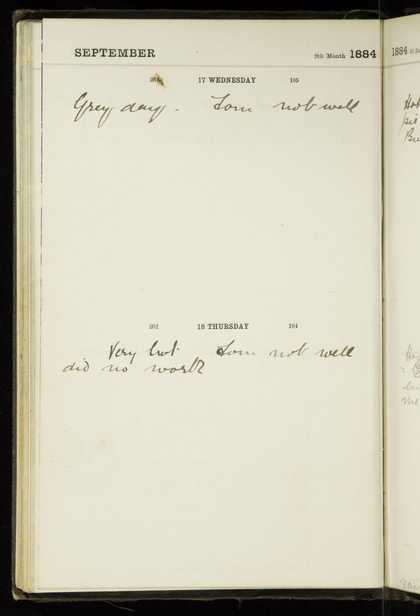 SEPTEMBER 9th Month 1884
17 WEDNESDAY 105
Grey day - Tom not well
262 18 THURSDAY 104
Very hot Tom not well
did no work
1884